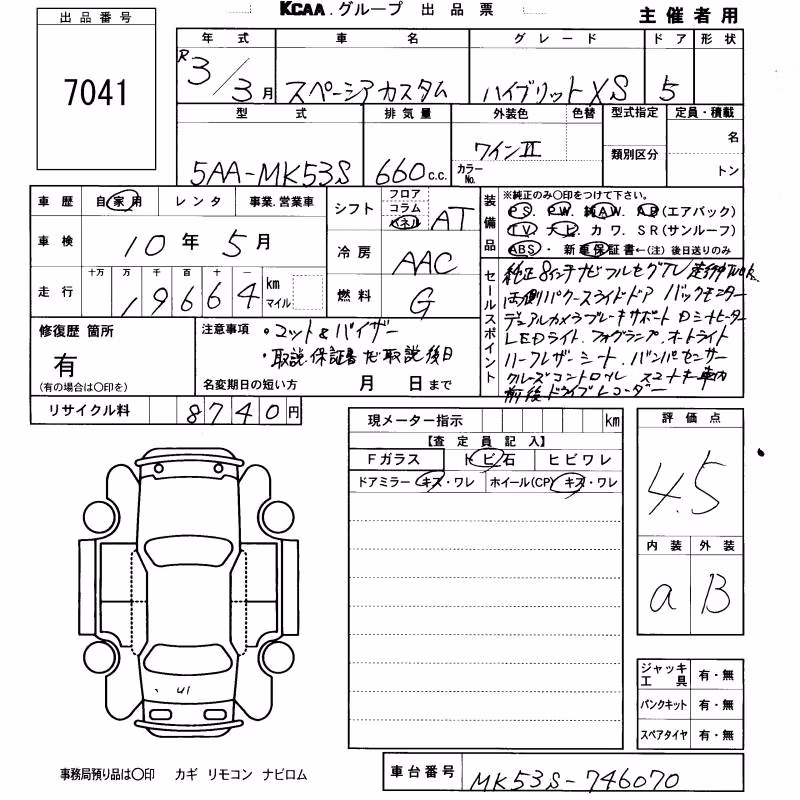 KCAA.グループ 出品票 主催者用
出品番号
7041
年式 車名 グレード ドア 形状
R3/3月 スペーシアカスタム ハイブリットXS 5
型式 排気量 外装色 色替 型式指定 定員・積載
5AA-MK53S 660c.c. ワインⅡ カラーNo. 類別区分 名 トン
車歴 自家用 レンタ 事業.営業車
車検 10年5月
走行 十万 万 千 百 十 一 19664 km マイル
シフト フロア コラム パネル AT
冷房 AAC
燃料 G
装備品 ※純正のみ〇印をつけて下さい。
PS. PW. 純AW. AB(エアバック)
TV. ナビ カワ. SR(サンルーフ)
ABS・ 新車保証書←(注)後日送りのみ
セールスポイント
純正8インチナビフルセグTV 走行中TVOK
両側パワースライドドア バックモニター
デュアルカメラブレーキサポート Dシートヒーター
LEDライト.フォグランプ.オートライト
ハーフレザーシート.バンパセンサー
クルーズコントロール スマートキー車内
前後ドライブレコーダー
修復歴 箇所
有
(有の場合は〇印を)
注意事項
・マット&バイザー
・取説保証書ナビ取説後日
名変期日の短い方 月 日まで
リサイクル料 8740円
現メーター指示 km
【査定員記入】
Fガラス トビ石 ヒビワレ
ドアミラー キズ・ワレ ホイール(CP) キズ・ワレ
評価点
4.5
内装 外装
a B
U1
ジャッキ工具 有・無
パンクキット 有・無
スペアタイヤ 有・無
事務局預り品は〇印 カギ リモコン ナビロム
車台番号 MK53S-746070